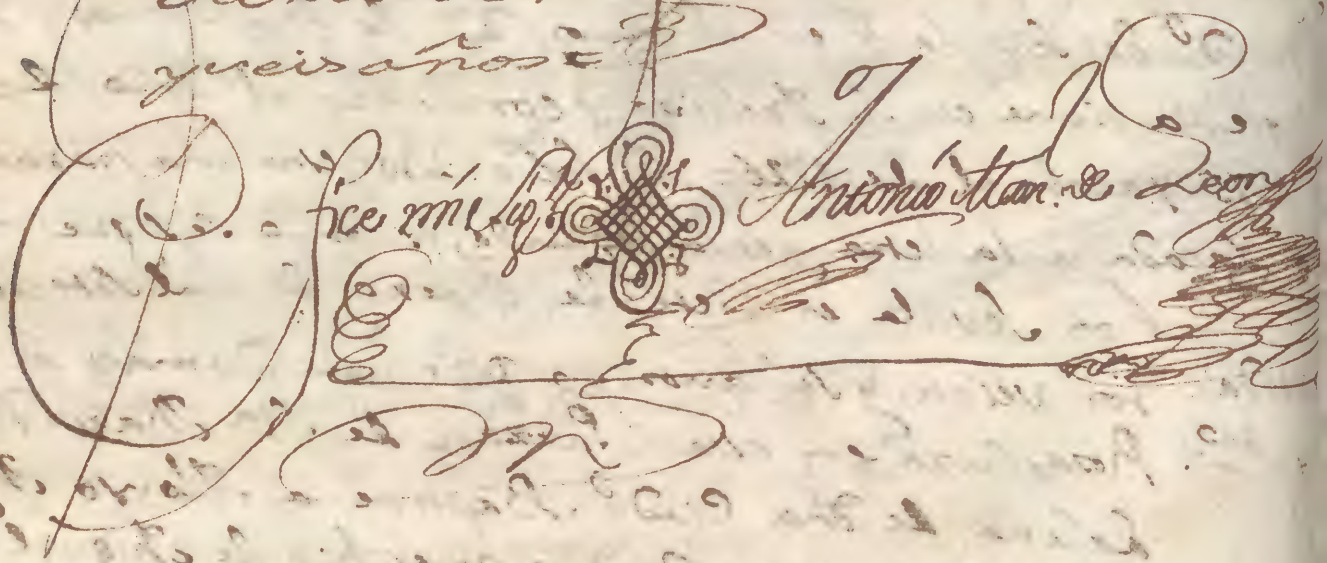 y seis años =
fice mi sig.º Antonio Man. de Leon